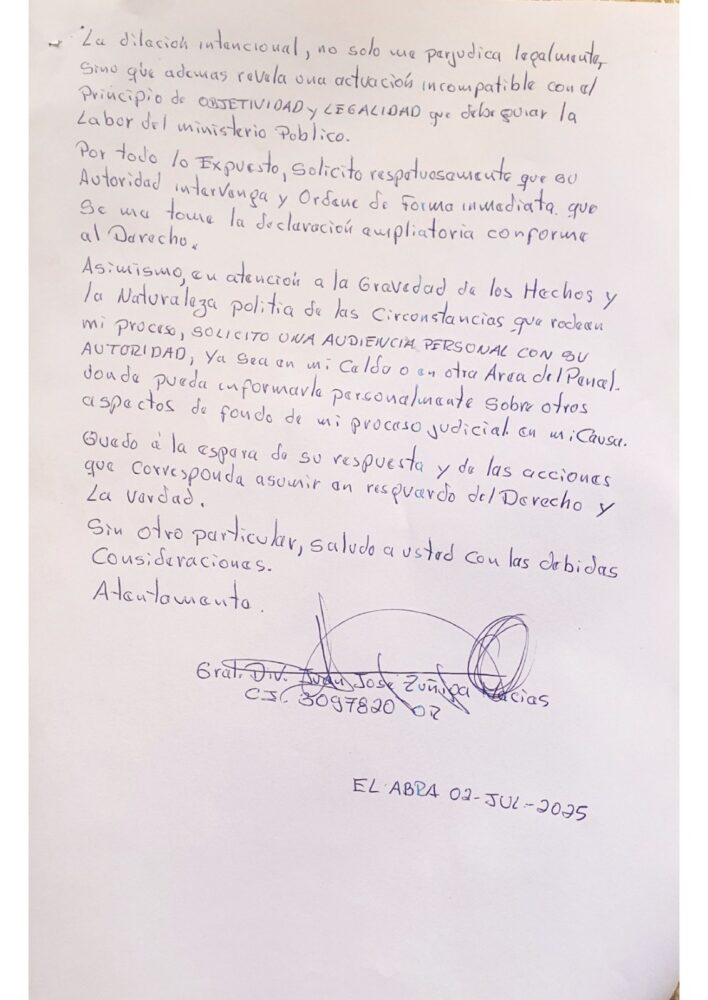 La dilación intencional, no solo me perjudica legalmente,
Sino que ademas revela una actuación incompatible con el
Principio de OBJETIVIDAD y LEGALIDAD que debe guiar la
Labor del ministerio Publico.
Por todo lo Expuesto, Solicito respetuosamente que su
Autoridad intervenga y Ordene de forma inmediata que
Se me tome la declaración ampliatoria conforme
al Derecho.
Asimismo, en atención a la Gravedad de los Hechos y
la Naturaleza politia de las Circunstancias que rodean
mi proceso, SOLICITO UNA AUDIENCIA PERSONAL CON SU
AUTORIDAD, Ya sea en mi Celda o en otra Area del Penal.
donde pueda informarle personalmente Sobre otros
aspectos de fondo de mi proceso judicial en mi Causa.
Quedo a la espera de su respuesta y de las acciones
que corresponda asumir en resguardo del Derecho y
La verdad.
Sin otro particular, saludo a usted con las debidas
Consideraciones.
Atentamente.
Gral. Div. Juan José Zuñiga Macias
C.I. 3097820 OR
EL ABRA 02-JUL-2025